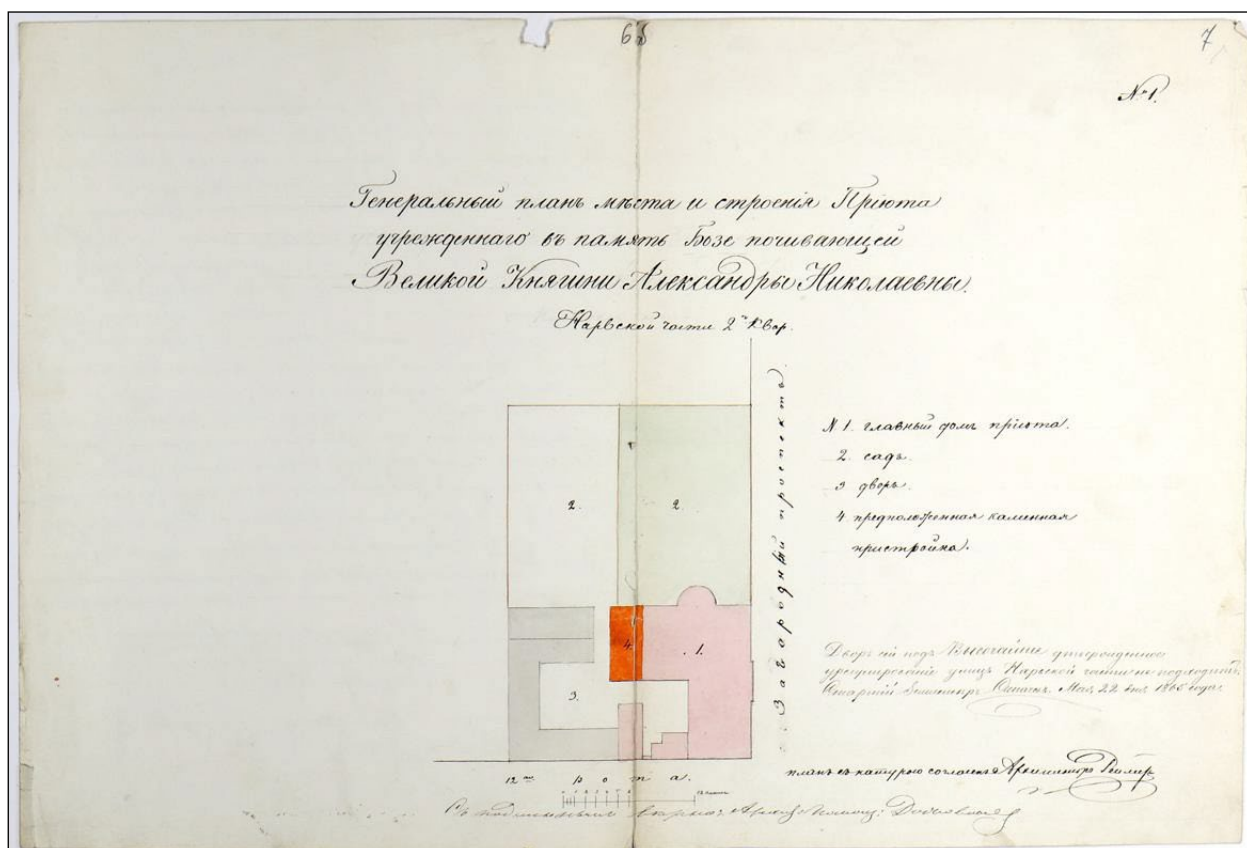 68
7
№ 1.
Генеральный планъ мѣста и строенія Пріюта
учрежденнаго въ память Бозѣ почивающей
Великой Княжни Александры Николаевны.
Нарвской части 2го Квар.
Загородный проспектъ.
N. 1. главный домъ пріюта.
2. садъ.
3 дворъ.
4. предположенная каменная
пристройка.
2.
2.
4.
1.
3.
12ая рота.
Дворъ сей подъ Высочайше утвержденное
урегулированіе улицъ Нарвской части не подходитъ.
Маія 22 дня 1865 года
планъ съ натурою согласенъ Архитекторъ
Съ подлиннымъ вѣрно: Архит. Помощ: